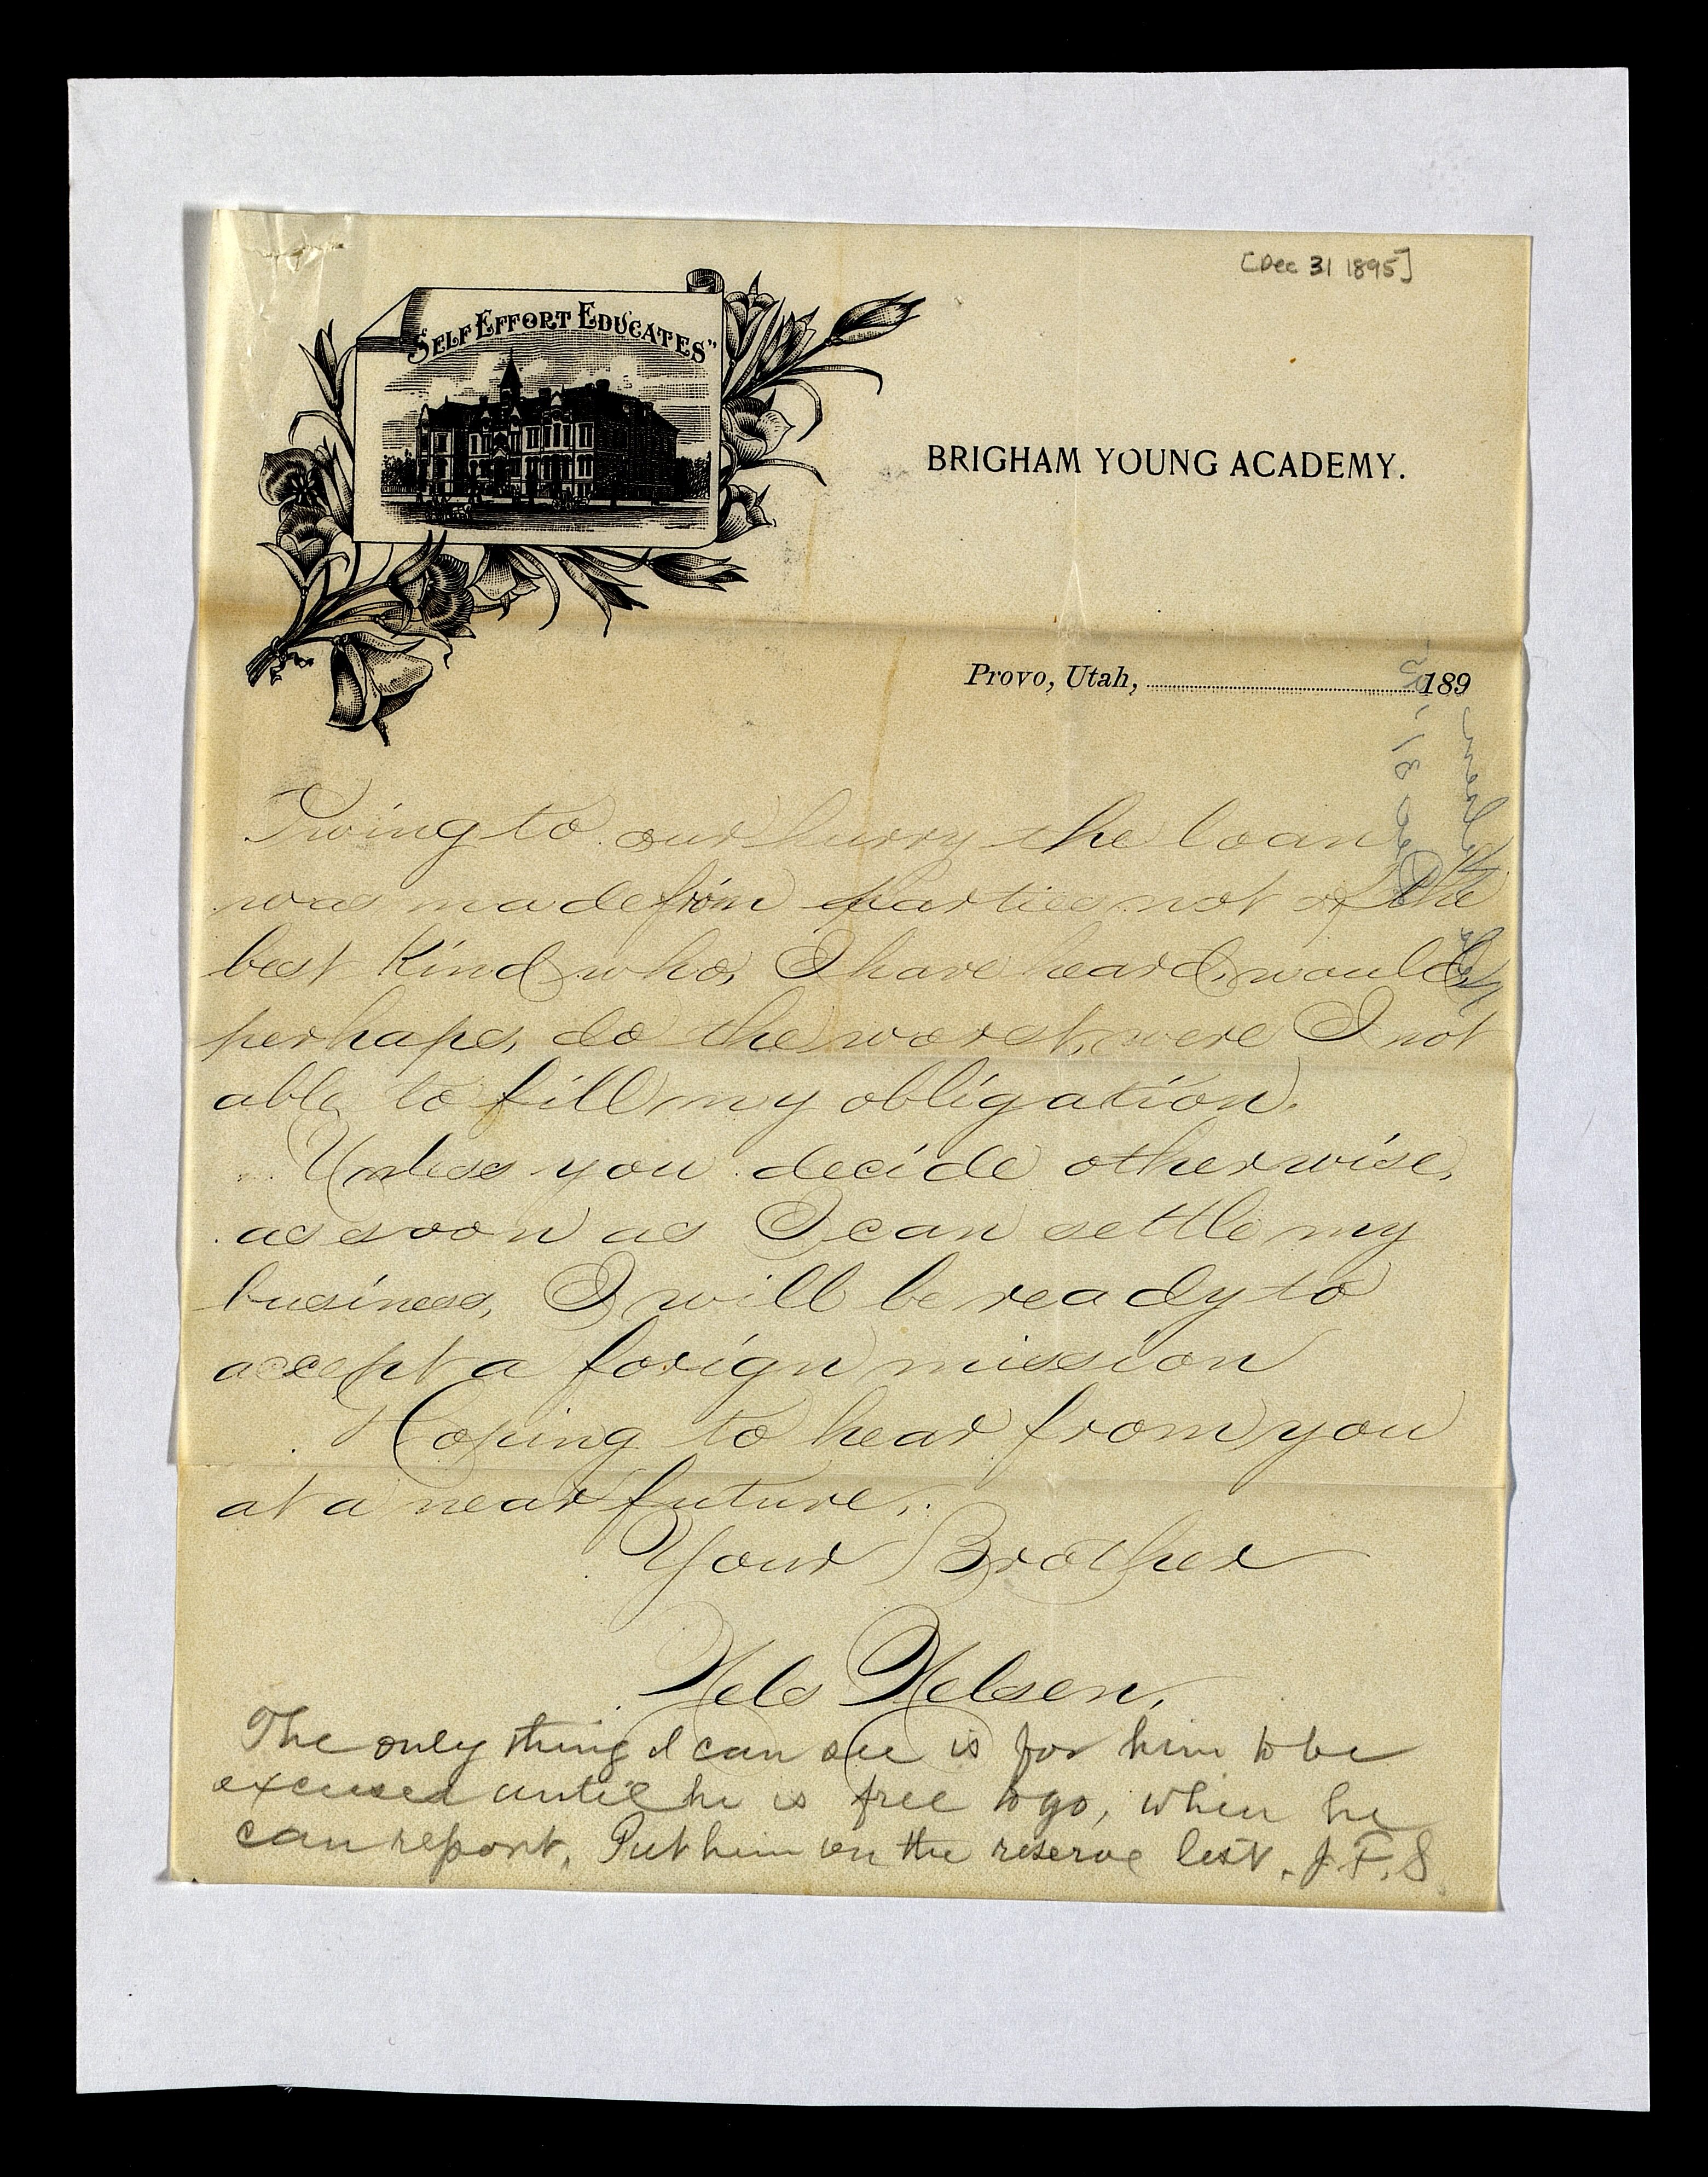 [Dec 31 1895]
"SELF EFFORT EDUCATES"
BRIGHAM YOUNG ACADEMY.
Provo, Utah, 189
Owing to our hurry the loan
was made from parties not of the
best kind who, I have heard, would,
perhaps, do the worst, were I not
able to fill my obligation.
Unless you decide otherwise,
as soon as I can settle my
business, I will be ready to
accept a forign mission
Hoping to hear from you
at a near future,
Your Brother
Nels Nelsen,
The only thing I can see is for him to be
excused until he is free to go, when he
can report. Put him on the reserve list. J. F. S